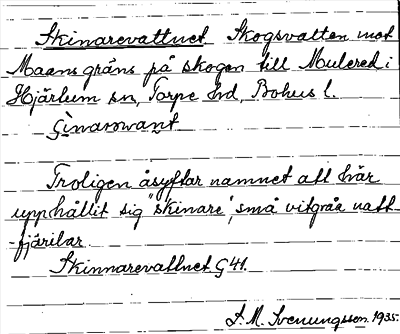 Skinarevattnet. Skogsvatten mot
Maans gräns på skogen till Mulered i
Hjärtum sn, Torpe hd, Bohus l.
Troligen åsyftar namnet att här
upphållit sig "skinare", små vitgråa natt-
-fjärilar.
Skinnarevattnet G 41.
J. M. Svenungsson. 1935.